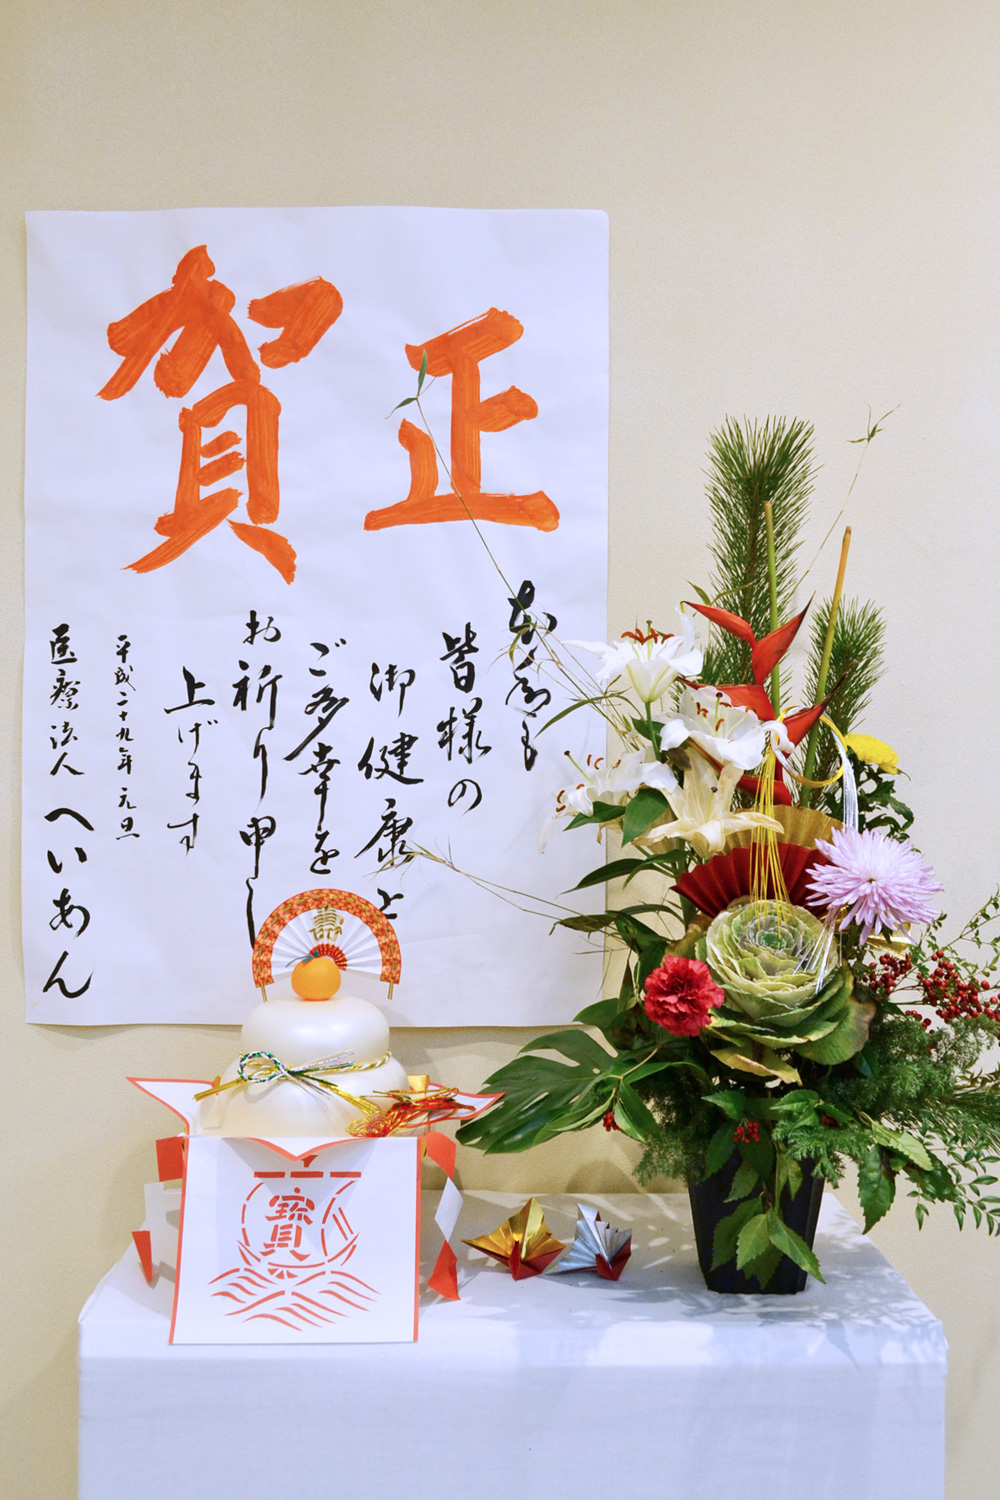 正賀
本年も
皆様の
御健康と
ご多幸を
お祈り申し
上げます
平成二十九年 元旦
医療法人 へいあん
寿
寳